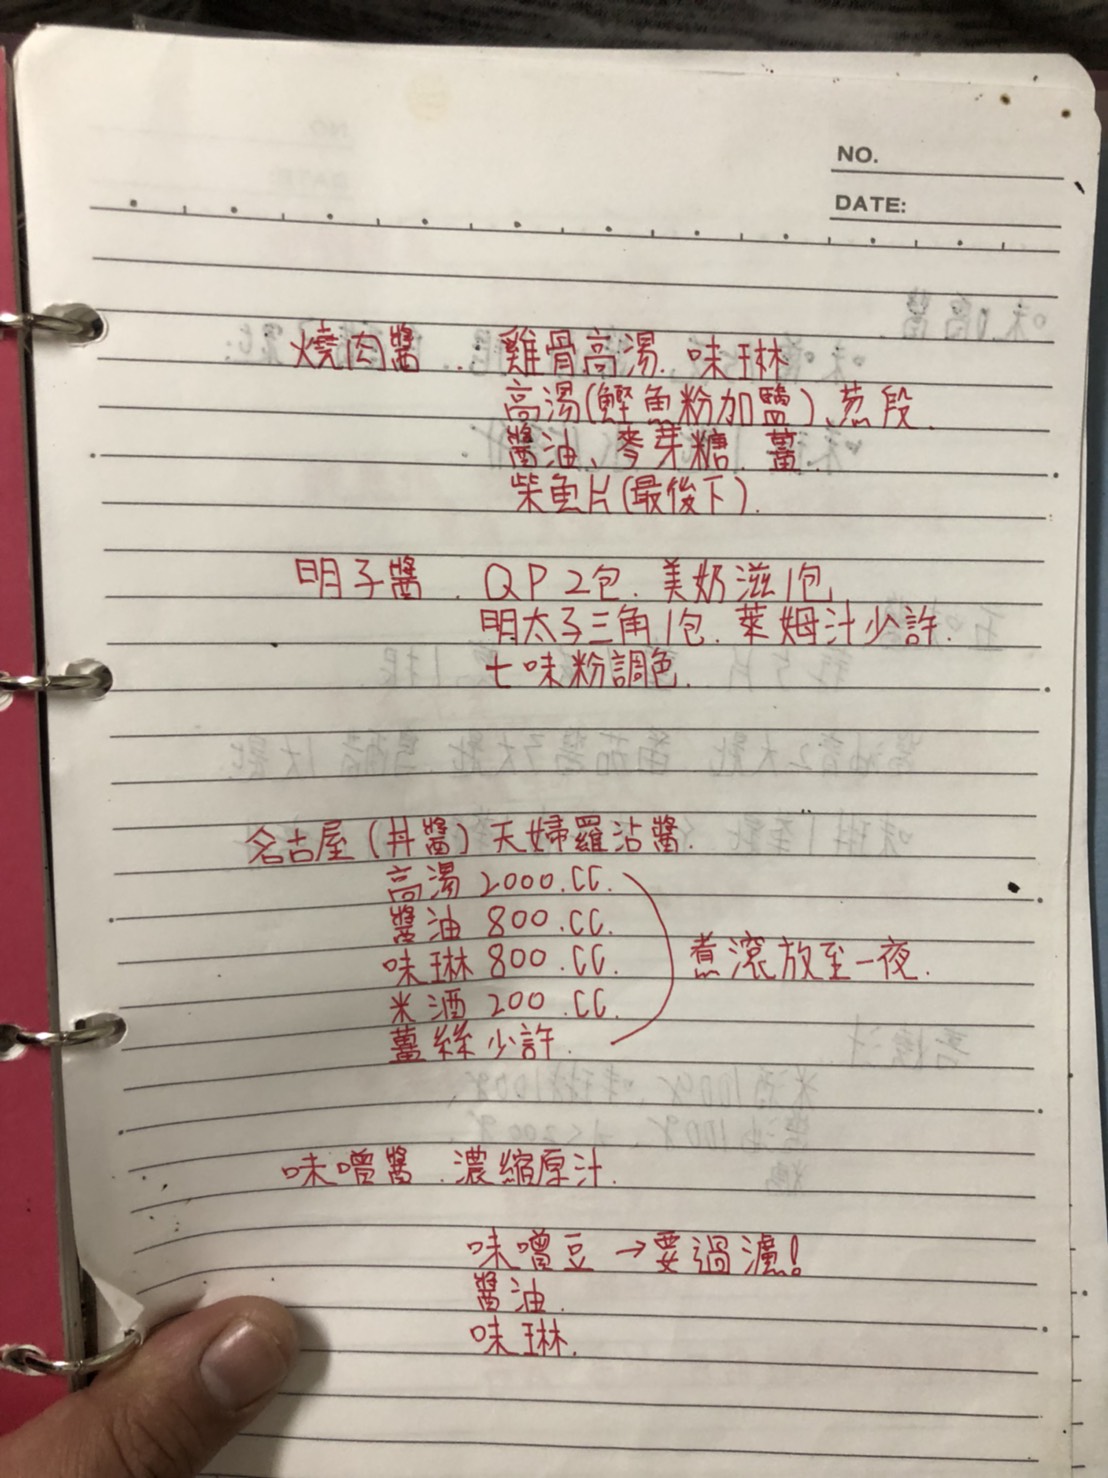 NO.
DATE:
燒肉醬. 雞骨高湯. 味琳
高湯(鰹魚粉加鹽)、蔥段.
醬油、麥芽糖. 薑.
柴魚片(最後下).
明子醬. QP2包. 美奶滋1包.
明太子三角1包. 萊姆汁少許.
七味粉調色.
名古屋(丼醬)天婦羅沾醬.
高湯 2000.CC.
醬油 800.CC.
味琳 800.CC. 煮滾放至一夜.
米酒 200.CC.
薑絲少許.
味噌醬. 濃縮原汁.
味噌豆 →要過濾!
醬油.
味琳.